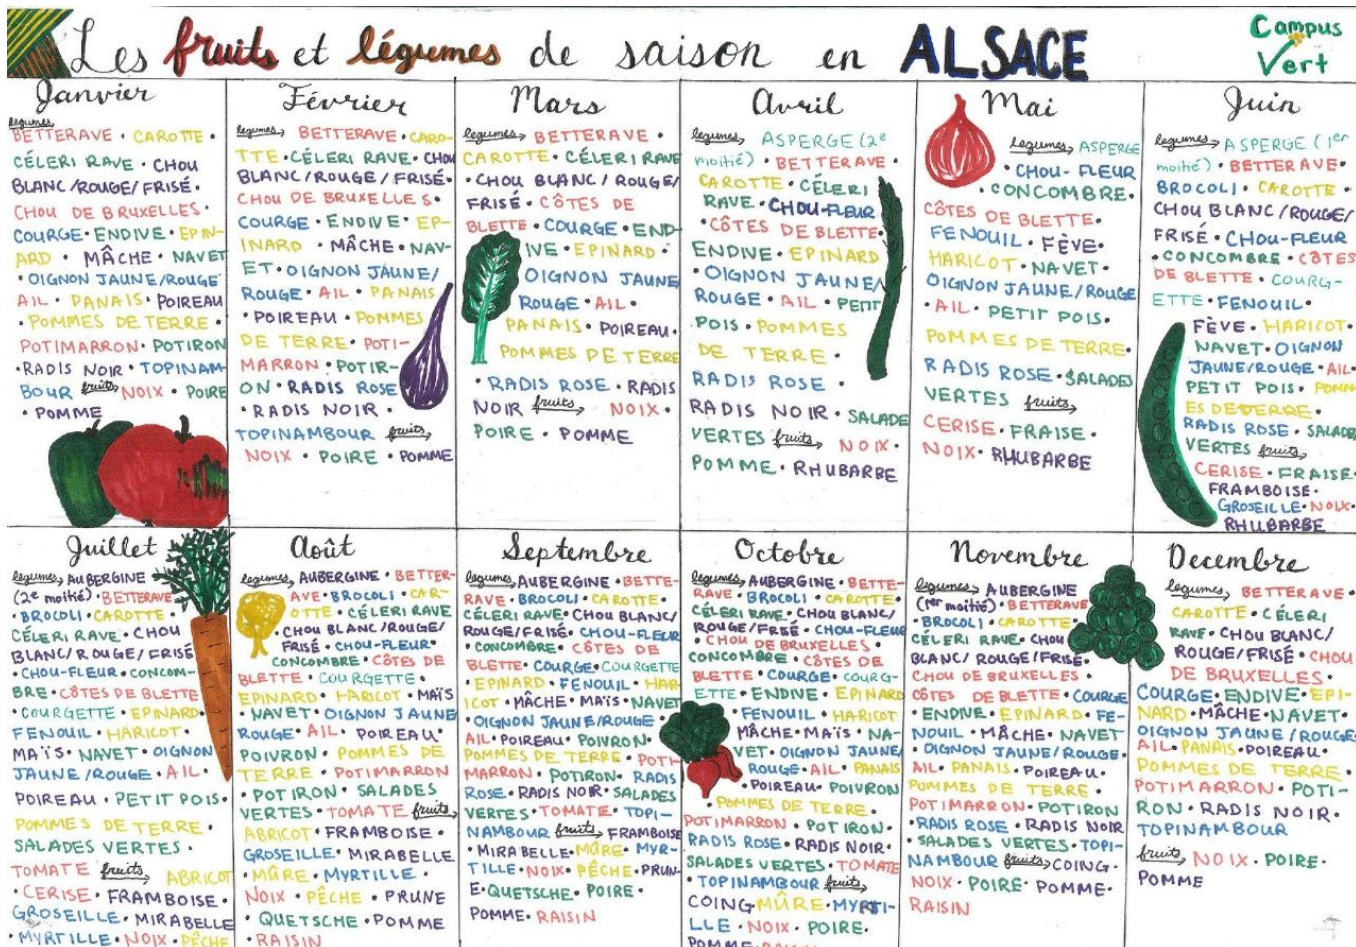 Les fruits et légumes de saison en ALSACE
Campus
Vert
Janvier
legumes
BETTERAVE · CAROTTE ·
CÉLERI RAVE · CHOU
BLANC/ROUGE/FRISÉ ·
CHOU DE BRUXELLES ·
COURGE · ENDIVE · EPIN-
ARD · MÂCHE · NAVET
· OIGNON JAUNE/ROUGE
AIL · PANAIS · POIREAU
· POMMES DE TERRE ·
POTIMARRON · POTIRON
· RADIS NOIR · TOPINAM-
BOUR fruits NOIX · POIRE
· POMME
Février
legumes BETTERAVE · CARO-
TTE · CÉLERI RAVE · CHOU
BLANC/ROUGE/FRISÉ ·
CHOU DE BRUXELLES ·
COURGE · ENDIVE · EP-
INARD · MÂCHE · NAV-
ET · OIGNON JAUNE/
ROUGE · AIL · PANAIS
· POIREAU · POMMES
DE TERRE · POTI-
MARRON · POTIR-
ON · RADIS ROSE
· RADIS NOIR ·
TOPINAMBOUR fruits
NOIX · POIRE · POMME
Mars
legumes BETTERAVE ·
CAROTTE · CÉLERI RAVE
· CHOU BLANC/ROUGE/
FRISÉ · CÔTES DE
BLETTE · COURGE · END-
IVE · EPINARD ·
OIGNON JAUNE
ROUGE · AIL ·
PANAIS · POIREAU ·
POMMES DE TERRE
· RADIS ROSE · RADIS
NOIR fruits NOIX ·
POIRE · POMME
Avril
legumes ASPERGE (2e
moitié) · BETTERAVE ·
CAROTTE · CÉLERI
RAVE · CHOU-FLEUR
· CÔTES DE BLETTE ·
ENDIVE · EPINARD
· OIGNON JAUNE/
ROUGE · AIL · PETIT
POIS · POMMES
DE TERRE ·
RADIS ROSE ·
RADIS NOIR · SALADE
VERTES fruits NOIX ·
POMME · RHUBARBE
Mai
legumes ASPERGE
· CHOU-FLEUR
· CONCOMBRE ·
CÔTES DE BLETTE ·
FENOUIL · FÈVE ·
HARICOT · NAVET ·
OIGNON JAUNE/ROUGE
· AIL · PETIT POIS ·
POMMES DE TERRE ·
RADIS ROSE · SALADES
VERTES fruits
CERISE · FRAISE ·
NOIX · RHUBARBE
Juin
legumes ASPERGE (1er
moitié) · BETTERAVE ·
BROCOLI · CAROTTE ·
CHOU BLANC/ROUGE/
FRISÉ · CHOU-FLEUR
· CONCOMBRE · CÔTES
DE BLETTE · COURG-
ETTE · FENOUIL ·
FÈVE · HARICOT ·
NAVET · OIGNON
JAUNE/ROUGE · AIL ·
PETIT POIS · POMM
ES DE TERRE ·
RADIS ROSE · SALADE
VERTES fruits
CERISE · FRAISE ·
FRAMBOISE ·
GROSEILLE · NOIX ·
RHUBARBE
Juillet
legumes AUBERGINE
(2e moitié) · BETTERAVE
· BROCOLI · CAROTTE ·
CÉLERI RAVE · CHOU
BLANC/ROUGE/FRISÉ
· CHOU-FLEUR · CONCOM-
BRE · CÔTES DE BLETTE
· COURGETTE · EPINARD ·
FENOUIL · HARICOT ·
MAÏS · NAVET · OIGNON
JAUNE/ROUGE · AIL ·
POIREAU · PETIT POIS ·
POMMES DE TERRE ·
SALADES VERTES ·
TOMATE fruits ABRICOT
· CERISE · FRAMBOISE ·
GROSEILLE · MIRABELLE
· MYRTILLE · NOIX · PÊCHE
Août
legumes AUBERGINE · BETTER-
AVE · BROCOLI · CAR-
OTTE · CÉLERI RAVE
· CHOU BLANC/ROUGE/
FRISÉ · CHOU-FLEUR ·
CONCOMBRE · CÔTES DE
BLETTE · COURGETTE ·
EPINARD · HARICOT · MAÏS
· NAVET · OIGNON JAUNE
ROUGE · AIL · POIREAU ·
POIVRON · POMMES DE
TERRE · POTIMARRON
· POTIRON · SALADES
VERTES · TOMATE fruits
ABRICOT · FRAMBOISE ·
GROSEILLE · MIRABELLE
· MÛRE · MYRTILLE ·
NOIX · PÊCHE · PRUNE
· QUETSCHE · POMME
· RAISIN
Septembre
legumes AUBERGINE · BETTE-
RAVE · BROCOLI · CAROTTE ·
CÉLERI RAVE · CHOU BLANC/
ROUGE/FRISÉ · CHOU-FLEUR
· CONCOMBRE · CÔTES DE
BLETTE · COURGE · COURGETTE
· EPINARD · FENOUIL · HAR-
ICOT · MÂCHE · MAÏS · NAVET
· OIGNON JAUNE/ROUGE ·
AIL · POIREAU · POIVRON ·
POMMES DE TERRE · POTI-
MARRON · POTIRON · RADIS
ROSE · RADIS NOIR · SALADES
VERTES · TOMATE · TOPI-
NAMBOUR fruits FRAMBOISE
· MIRABELLE · MÛRE · MYR-
TILLE · NOIX · PÊCHE · PRUN-
E · QUETSCHE · POIRE ·
POMME · RAISIN
Octobre
legumes AUBERGINE · BETTE-
RAVE · BROCOLI · CAROTTE ·
CÉLERI RAVE · CHOU BLANC/
ROUGE/FRISÉ · CHOU-FLEUR
· CHOU DE BRUXELLES ·
CONCOMBRE · CÔTES DE
BLETTE · COURGE · COURG-
ETTE · ENDIVE · EPINARD
· FENOUIL · HARICOT
MÂCHE · MAÏS · NA-
VET · OIGNON JAUNE/
ROUGE · AIL · PANAIS
· POIREAU · POIVRON
· POMMES DE TERRE ·
POTIMARRON · POTIRON ·
RADIS ROSE · RADIS NOIR ·
SALADES VERTES · TOMATE
· TOPINAMBOUR fruits
COING · MÛRE · MYRTI-
LLE · NOIX · POIRE ·
POMME · RAISIN
Novembre
legumes AUBERGINE
(1er moitié) · BETTERAVE
· BROCOLI · CAROTTE ·
CÉLERI RAVE · CHOU
BLANC/ROUGE/FRISÉ ·
CHOU DE BRUXELLES ·
CÔTES DE BLETTE · COURGE
· ENDIVE · EPINARD · FE-
NOUIL · MÂCHE · NAVET
· OIGNON JAUNE/ROUGE ·
AIL · PANAIS · POIREAU ·
POMMES DE TERRE ·
POTIMARRON · POTIRON
· RADIS ROSE · RADIS NOIR
· SALADES VERTES · TOPI-
NAMBOUR fruits COING ·
NOIX · POIRE · POMME ·
RAISIN
Decembre
legumes BETTERAVE ·
CAROTTE · CÉLERI
RAVE · CHOU BLANC/
ROUGE/FRISÉ · CHOU
DE BRUXELLES ·
COURGE · ENDIVE · EPI-
NARD · MÂCHE · NAVET ·
OIGNON JAUNE/ROUGE ·
AIL · PANAIS · POIREAU ·
POMMES DE TERRE ·
POTIMARRON · POTI-
RON · RADIS NOIR ·
TOPINAMBOUR
fruits NOIX · POIRE ·
POMME